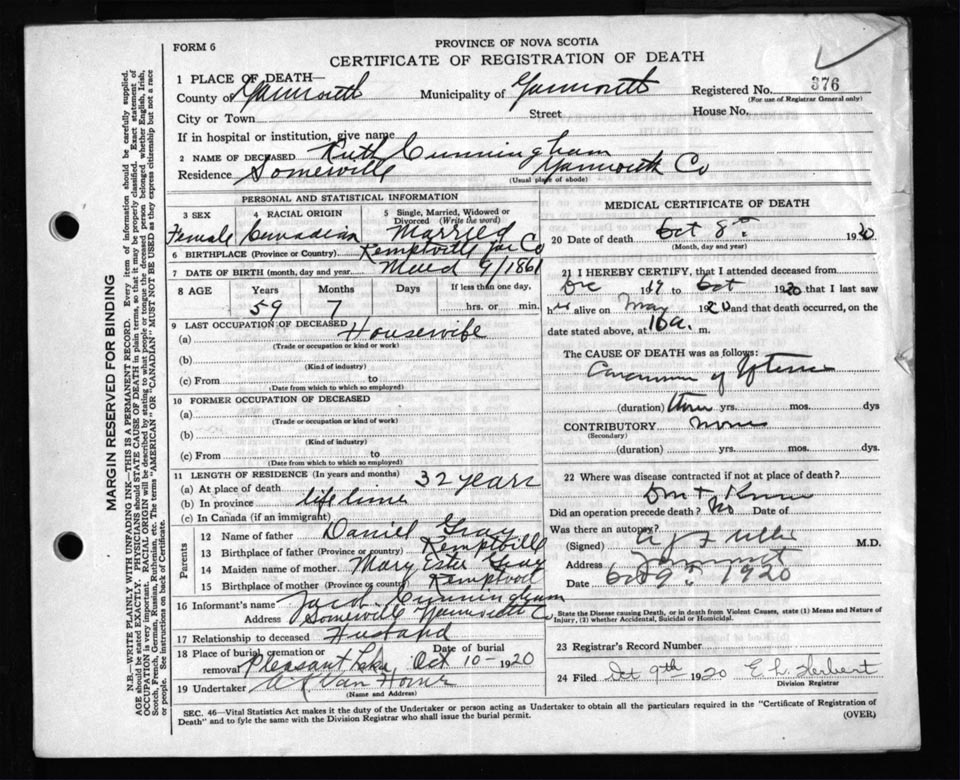 FORM 6
PROVINCE OF NOVA SCOTIA
CERTIFICATE OF REGISTRATION OF DEATH
1 PLACE OF DEATH—
County of Yarmouth Municipality of Yarmouth Registered No. 376
(For use of Registrar General only)
City or Town Street House No.
If in hospital or institution, give name
2 NAME OF DECEASED Ruth Cunningham
Residence Somerville Yarmouth Co
(Usual place of abode)
PERSONAL AND STATISTICAL INFORMATION
3 SEX 4 RACIAL ORIGIN 5 Single, Married, Widowed or Divorced (Write the word)
Female Canadian Married
6 BIRTHPLACE (Province or Country) Kemptville Yar Co
7 DATE OF BIRTH (month, day and year) 9/1861
8 AGE Years Months Days If less than one day,
59 7 hrs. or min.
9 LAST OCCUPATION OF DECEASED
(a) Housewife
(Trade or occupation or kind of work)
(b)
(Kind of industry)
(c) From to
(Date from which to which so employed)
10 FORMER OCCUPATION OF DECEASED
(a)
(Trade or occupation or kind of work)
(b)
(Kind of industry)
(c) From to
(Date from which to which so employed)
11 LENGTH OF RESIDENCE (In years and months)
(a) At place of death 32 years
(b) In province life time
(c) In Canada (if an immigrant)
Parents
12 Name of father Daniel Gray
13 Birthplace of father (Province or country) Kemptville
14 Maiden name of mother Mary Ester Gray
15 Birthplace of mother (Province or county)
16 Informant's name Jacob Cunningham
Address Somerville Yarmouth Co
17 Relationship to deceased Husband
18 Place of burial, cremation or removal Pleasant Lake Date of burial Oct 10-1920
19 Undertaker A K Van Horne
(Name and Address)
MEDICAL CERTIFICATE OF DEATH
20 Date of death Oct 8th 1920
(Month, day and year)
21 I HEREBY CERTIFY, that I attended deceased from
Dec 1919 to Oct 1920 that I last saw
h alive on May 1920 and that death occurred, on the
date stated above, at 10 a. m.
The CAUSE OF DEATH was as follows:
Carcinoma of Uterus
(duration) three yrs. mos. dys
CONTRIBUTORY None
(Secondary)
(duration) yrs. mos. dys.
22 Where was disease contracted if not at place of death?
Don't Know
Did an operation precede death? No Date of
Was there an autopsy?
(Signed) Fuller M.D.
Address Yarmouth
Date Oct 9th 1920
State the Disease causing Death, or in death from Violent Causes, state (1) Means and Nature of Injury, (2) whether Accidental, Suicidal or Homicidal.
23 Registrar's Record Number
24 Filed Oct 9th 1920 E L Herbert
Division Registrar
SEC. 46—Vital Statistics Act makes it the duty of the Undertaker or person acting as Undertaker to obtain all the particulars required in the "Certificate of Registration of
Death" and to fyle the same with the Division Registrar who shall issue the burial permit. (OVER)
MARGIN RESERVED FOR BINDING
N.B.—WRITE PLAINLY WITH UNFADING INK—THIS IS A PERMANENT RECORD. Every item of information should be carefully supplied.
AGE should be stated EXACTLY. PHYSICIANS should STATE CAUSE OF DEATH in plain terms, so that it may be properly classified. Exact statement of
OCCUPATION is very important. RACIAL ORIGIN will be described by stating to what people or tongue the deceased person belonged whether English, Irish,
Scotch, French, German, Russian, Ruthenian, etc. The terms "AMERICAN" OR "CANADIAN" MUST NOT BE USED as they express citizenship but not a race
or people. See instructions on back of Certificate.